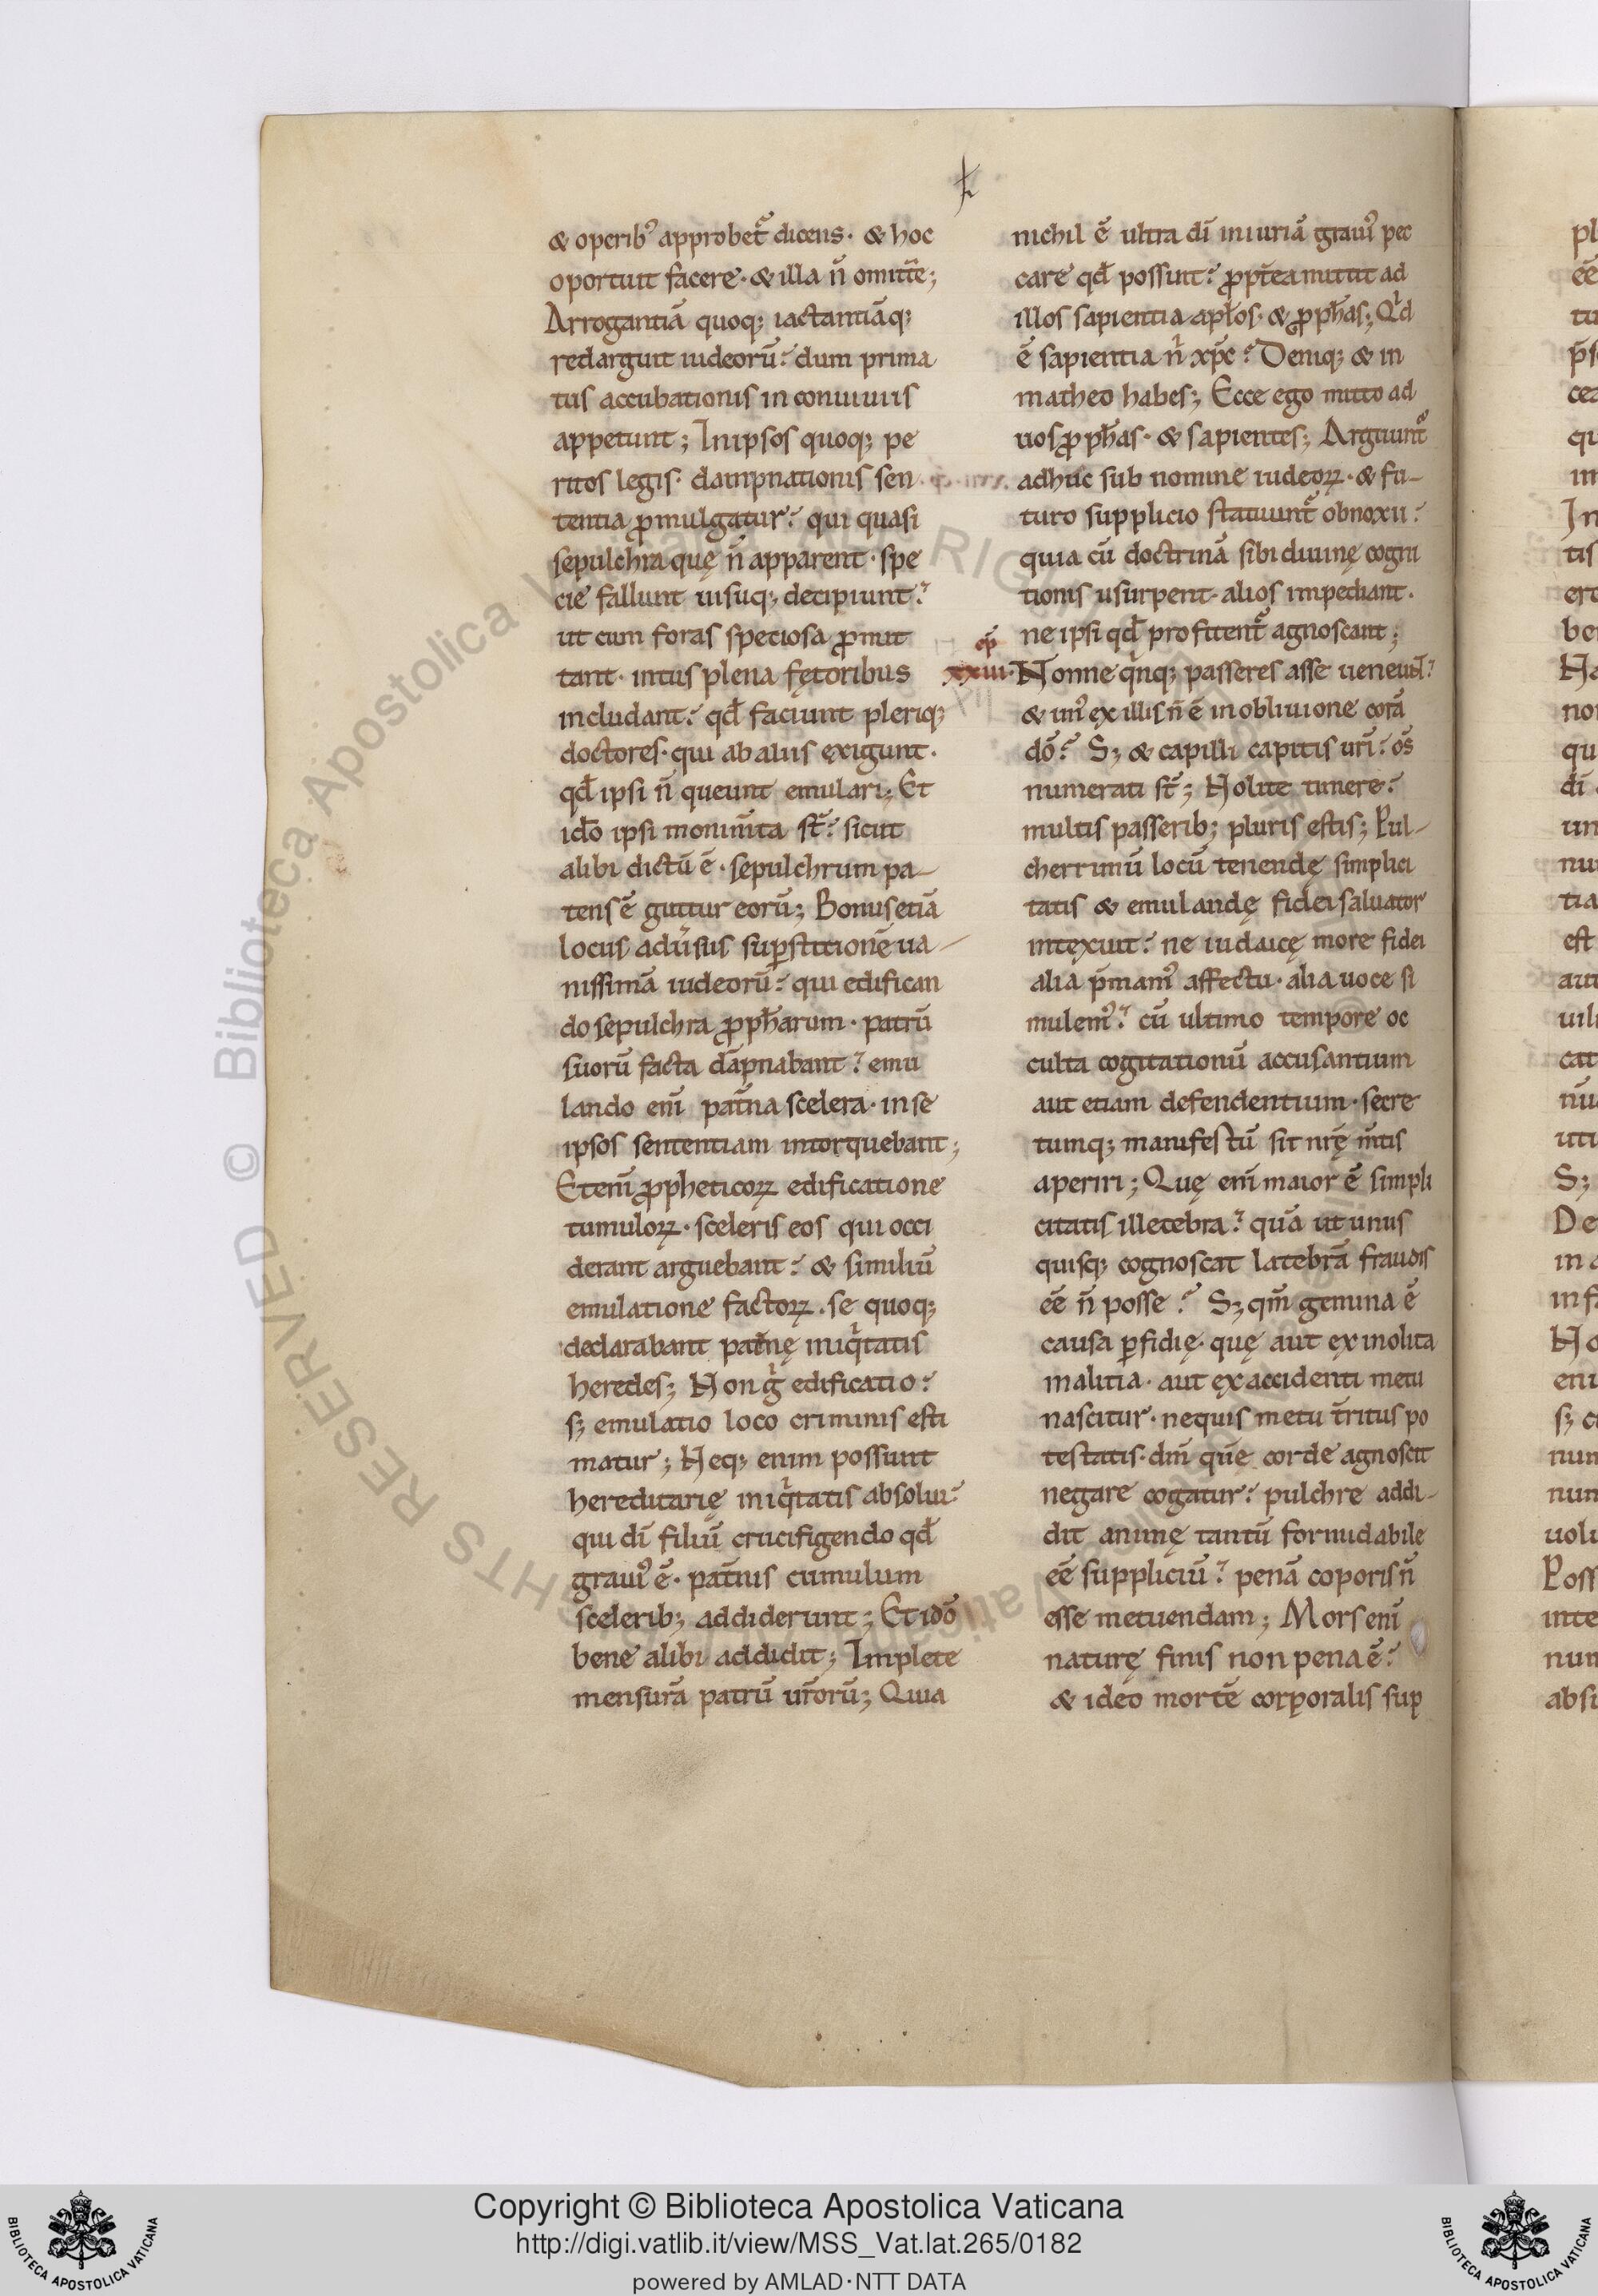 & operib᾽ approbet᷑ dicens· & hoc
oportuit facere·& illa n̄ omitt̄e;
Arrogantiā quoq; iactantiāq;
redarguit iudeorū? dum prima
tus accubationis in conuiuiis
appetunt; In ipsos quoq; pe
ritos legis· dampnationis sen
tentia ꝓmulgatur? qui quasi
sepulchra quę n̄ apparent· spe
cie fallunt uisuq; decipiunt?
ut cum foras speciosa ꝓmit
tant· intus plena fętoribus
includant? qd̄ faciunt pleriq;
doctores· qui ab aliis exigunt·
qd̄ ipsi n̄ queunt emulari; Et
ido ipsi monim̄ta st̄? sicut
alibi dictū ē· sepulchrum pa-
tens ē guttur eorū; Bonus etiā
locus adu̓sus suꝑstitionē ua-
nissimā iudeorū? qui edifican
do sepulchra ꝓph̄arum· patrū
suorū facta dāpnabant? emu
lando eni̅ pat̄na scelera· in se
ipsos sententiam intorquebant;
Eteni̅ ꝓpheticoꝝ edificatione
tumuloꝝ· sceleris eos qui occi
derant arguebant? & similiū
emulatione factoꝝ· se quoq;
declarabant pat̄nę iniq̇tatis
heredes; Non g̊ edificatio?
s; emulatio loco criminis esti
matur; Neq; enim possunt
hereditarię iniq̇tatis absolui?
qui di̅ filiū crucifigendo qd̄
graui᾽ ē· pat̄nis cumulum
scelerib; addiderunt; Et idō
bene alibi addidit; Implete
mensurā patrū ur̄orū; Quia
nichil ē ultra di̅ iniuriā graui᾽ pec
care qd̄ possint? ꝓpt̄ea mittit ad
illos sapientia apl̄os· & ꝓph̄as; Qͥd
ē sapientia nͥ xp̄c? Deniq; & in
matheo habes; Ecce ego mitto ad
uos ꝓph̄as· & sapientes; Arguunt᷑
adhuc sub nomine iudeoꝝ· & fu-
turo supplicio statuunt᷑ obnoxii?
quia cū doctrinā sibi diuinę cogni
tionis usurpent· alios impediant·
ne ipsi qd̄ profitent᷑ agnoscant;
cp̄
xxiii·
Nonne qͥnq; passeres asse ueneūt?
& un᾽ ex illis n̄ ē in obliuione corā
dō? S; & capilli capitis ur̄i? oṁs
numerati st̄; Nolite timere?
multis passerib; pluris estis; Pul-
cherrimū locū tenendę simplici
tatis & emulandę fidei saluator
intexuit? ne iudaicę more fidei
alia p̄mam᾽ affectu· alia uoce si
mulem᾽? cū ultimo tempore oc
culta cogitationū accusantium
aut etiam defendentium· secre
tumq; manifestū sit nr̄ę m̄tis
aperiri; Quę eni̅ maior ē simpli
citatis illecebra? quā ut unus
quisq; cognoscat latebrā fraudis
eē n̄ posse? S; qm̄ gemina ē
causa ꝑfidię· quę aut ex inolita
malitia· aut ex accidenti metu
nascitur· nequis metu t̄ritus po
testatis· dm̄ quē corde agnoscit
negare cogatur? pulchre addi-
dit animę tantū formidabile
eē suppliciū? penā coporis n̄
esse metuendam; Mors eni̅
naturę finis non pena ē?
& ideo mortē corporalis sup
Copyright © Biblioteca Apostolica Vaticana
http://digi.vatlib.it/view/MSS_Vat.lat.265/0182
powered by AMLAD·NTT DATA
BIBLIOTECA APOSTOLICA VATICANA
BIBLIOTECA APOSTOLICA VATICANA